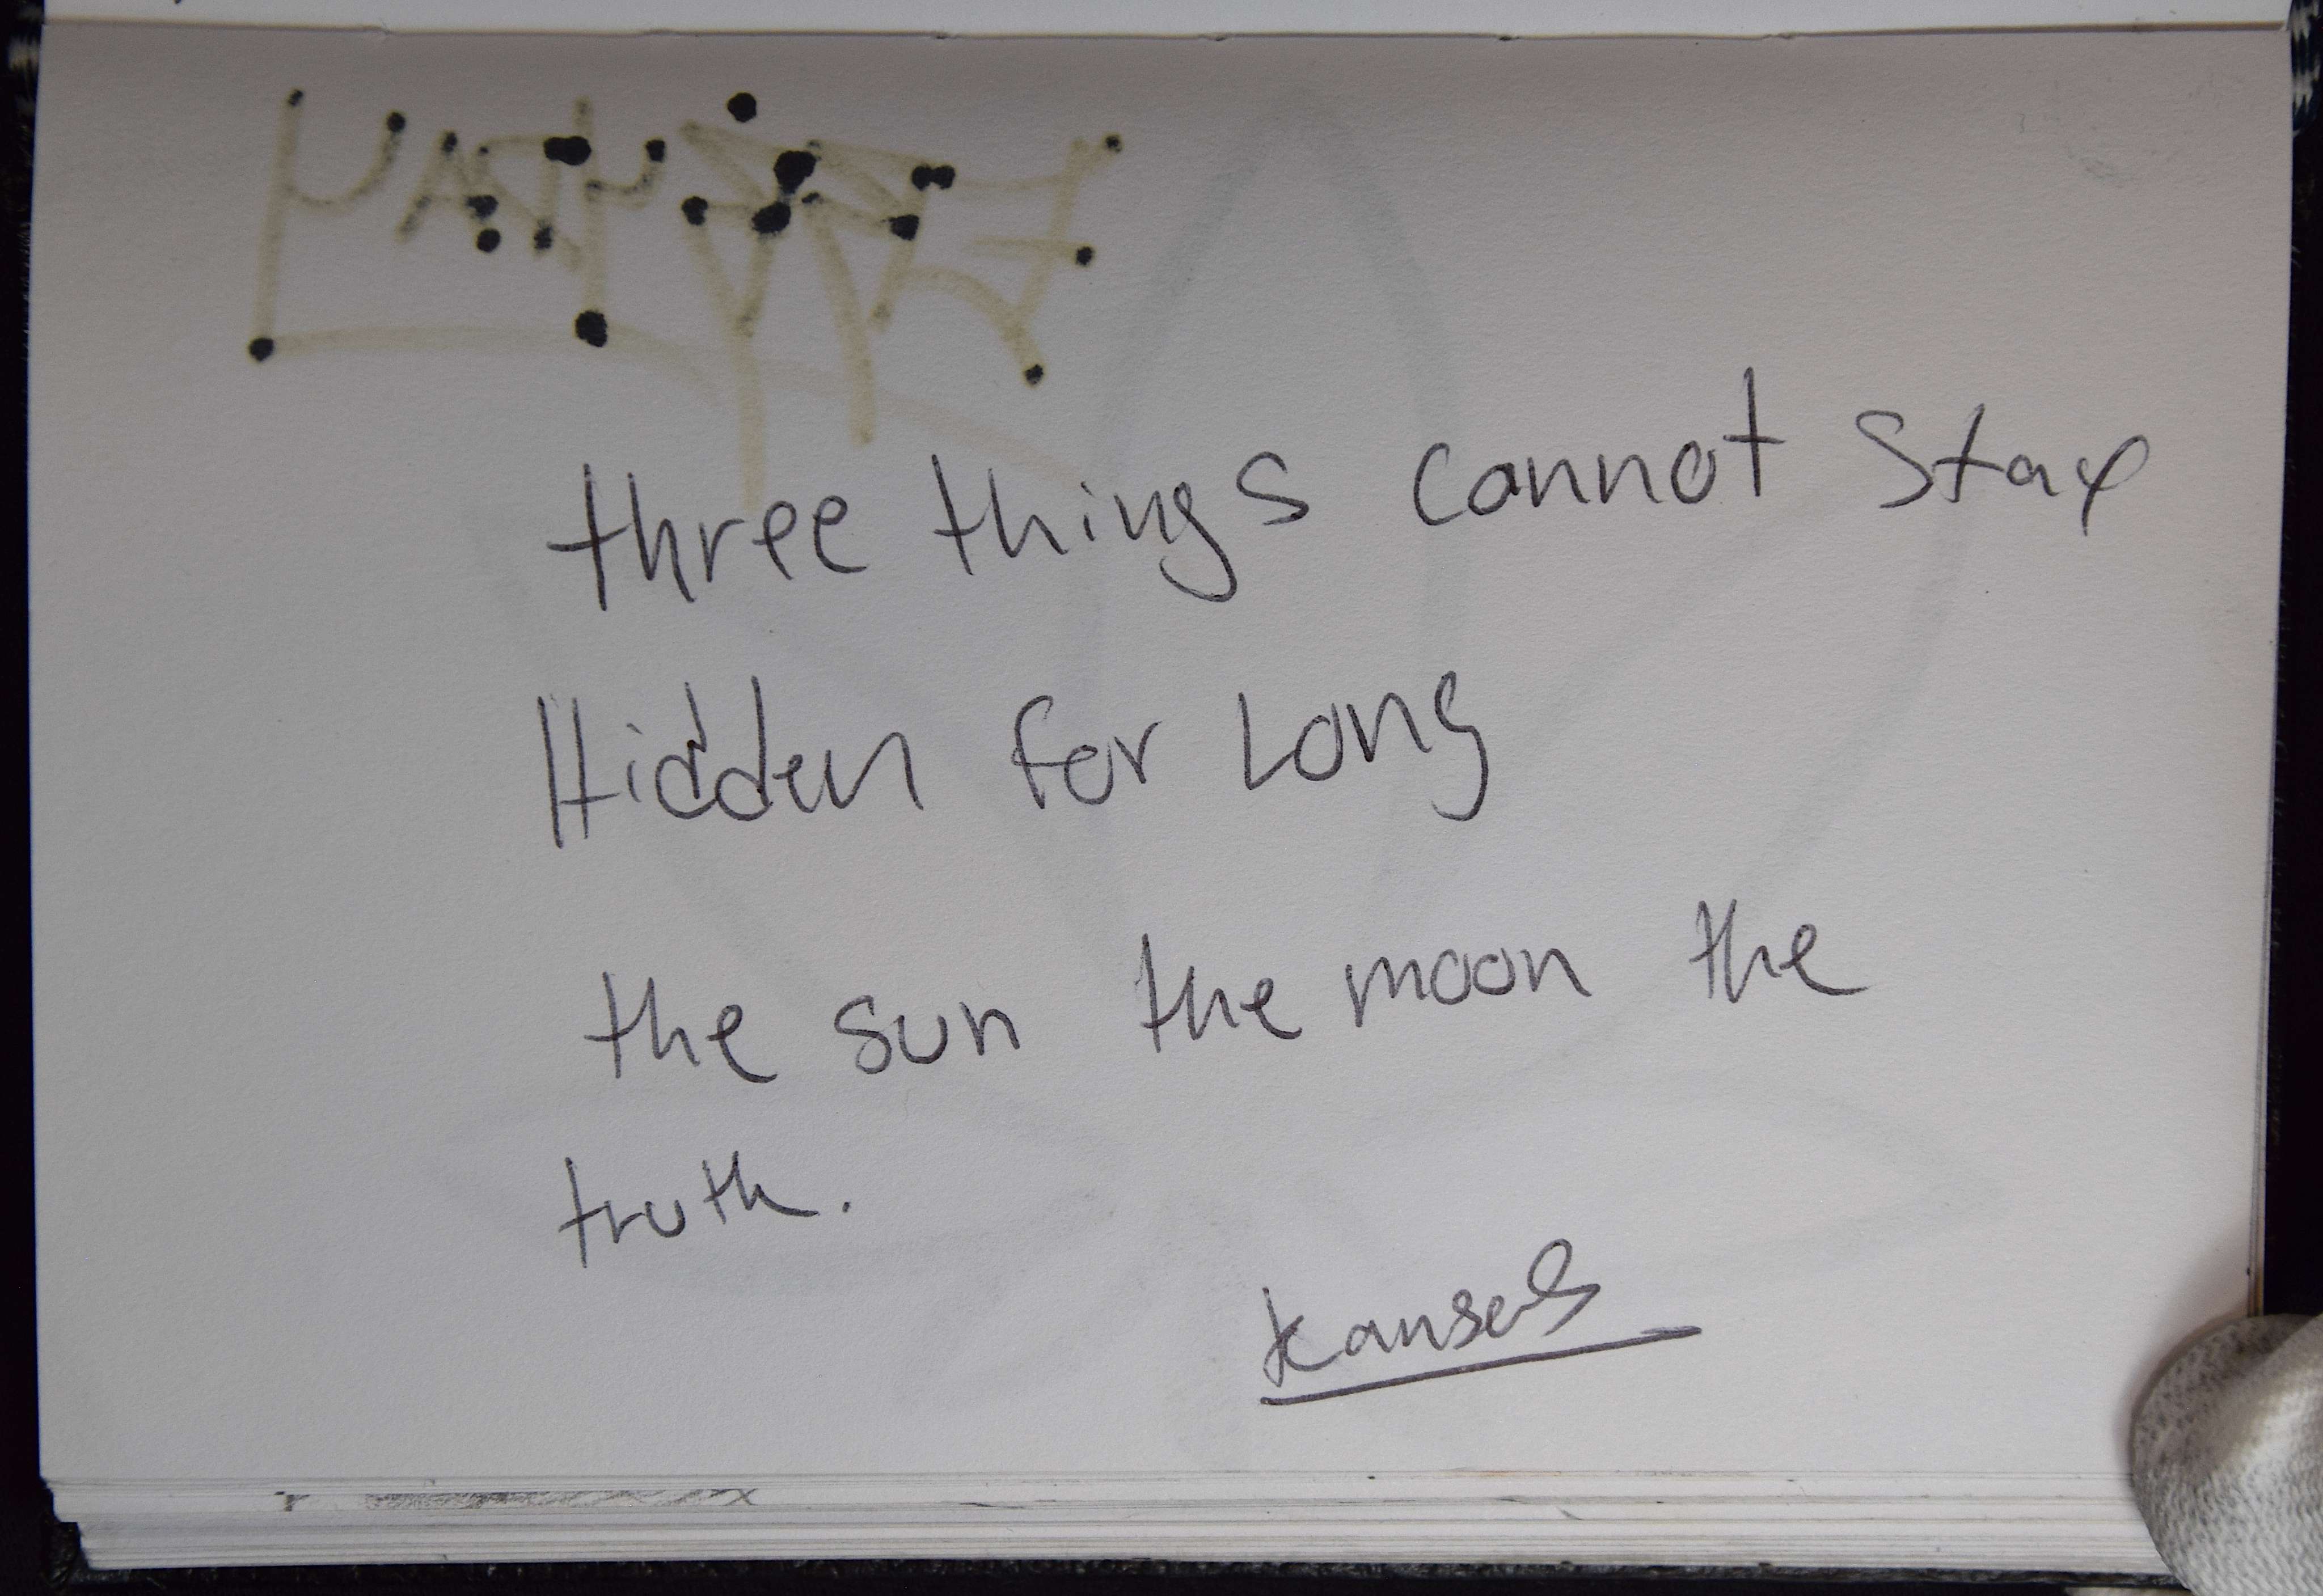 three things cannot stay
Hidden for Long
the sun the moon the
truth.